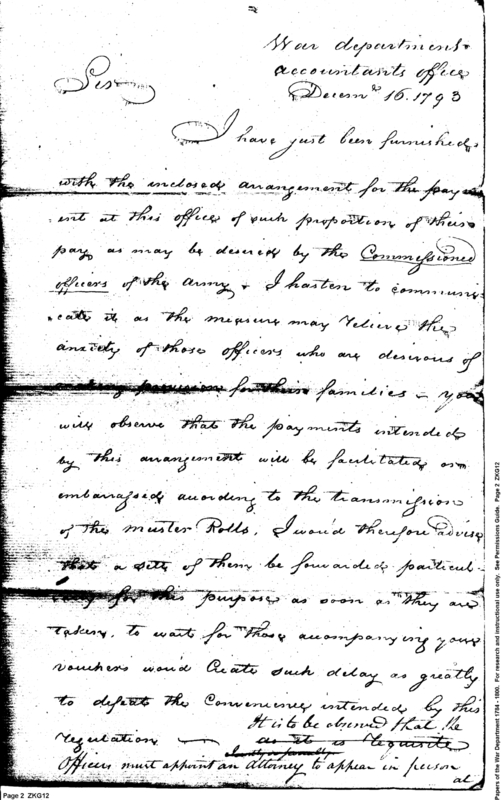 War department
accountants office
Decem^r 16. 1793
Sir
I have just been furnished
with the inclosed arrangement for the paym
ent at this office of such proportion of their
pay as may be desired by the Commissioned
officers of the Army & I hasten to communi
cate it as the measure may relieve the
anxiety of those officers who are desirous of
making provision for their families – you
will observe that the payments intended
by this arrangement will be facilitated or
embarrassed according to the transmission
of the Muster Rolls, I would therefore advise
that a sett of them be forwarded particul-
arly for this purpose as soon as they are
taken, to wait for those accompanying your
vouchers would Create such delay as greatly
to defeat the Convenience intended by this
regulation — It is to be observed that the
as it is requisite
Officers must appoint an Attorney to appear in person
at
Page 2 ZKG12
Papers of the War Department 1784 - 1800. For research and instructional use only. See Permissions Guide. Page 2 ZKG12